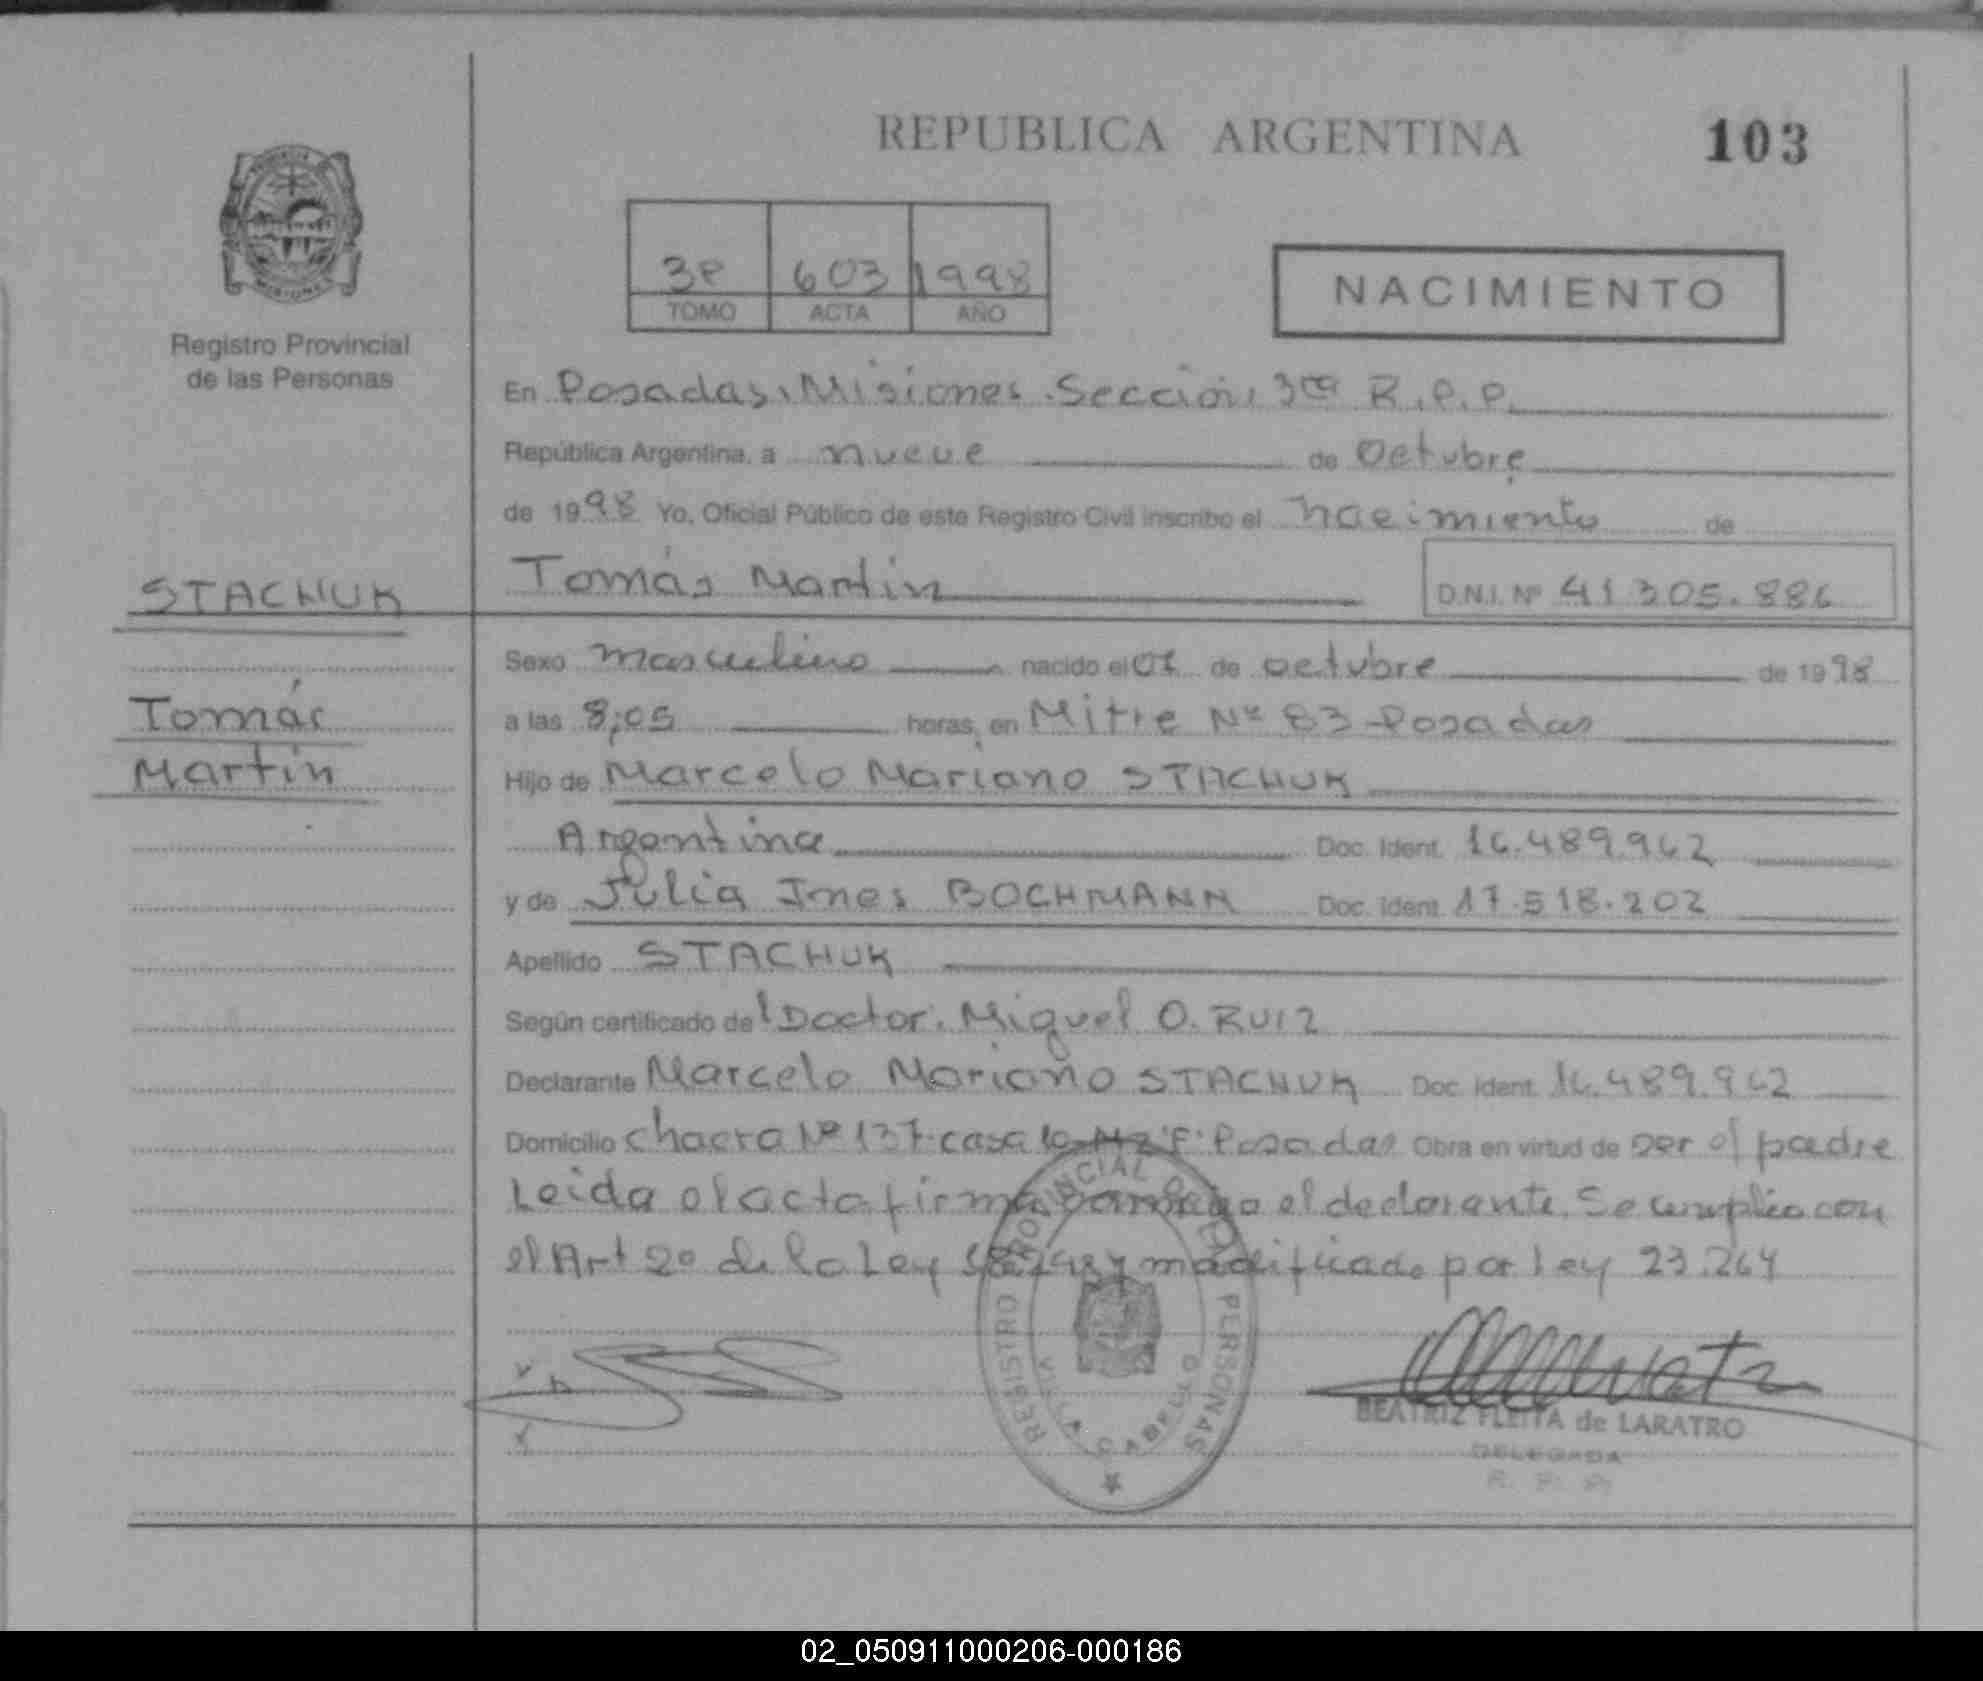 REPUBLICA ARGENTINA
103
PROVINCIA
MISIONES
Registro Provincial
de las Personas
3º 603 1998
TOMO ACTA AÑO
NACIMIENTO
En Posadas, Misiones. Sección, 3ra R.P.P.
República Argentina, a nueve de Octubre
de 1998 Yo, Oficial Público de este Registro Civil inscribo el nacimiento de
STACHUK
Tomás Martín D.N.I. Nº 41.305.886
Sexo masculino nacido el 01 de octubre de 1998
Tomás
a las 8,05 horas, en Mitre Nº 83 - Posadas
Martín
Hijo de Marcelo Mariano STACHUK
Argentina Doc. Ident. 16.489.962
y de Julia Ines BOCHMANN Doc. Ident. 17.518.202
Apellido STACHUK
Según certificado del Doctor. Miguel O. RUIZ
Declarante Marcelo Mariano STACHUK Doc. Ident. 16.489.962
Domicilio chacra Nº 137. casa Mz "F" Posadas Obra en virtud de ser el padre
Leida el acta firma conmigo el declarante. Se cumplio con
el Art 2º de la Ley y modificado por ley 23.264
REGISTRO PROVINCIAL DE LAS PERSONAS
VILLA CABELLO
BEATRIZ FLEITA de LARATRO
DELEGADA
R. P. P.
02_050911000206-000186